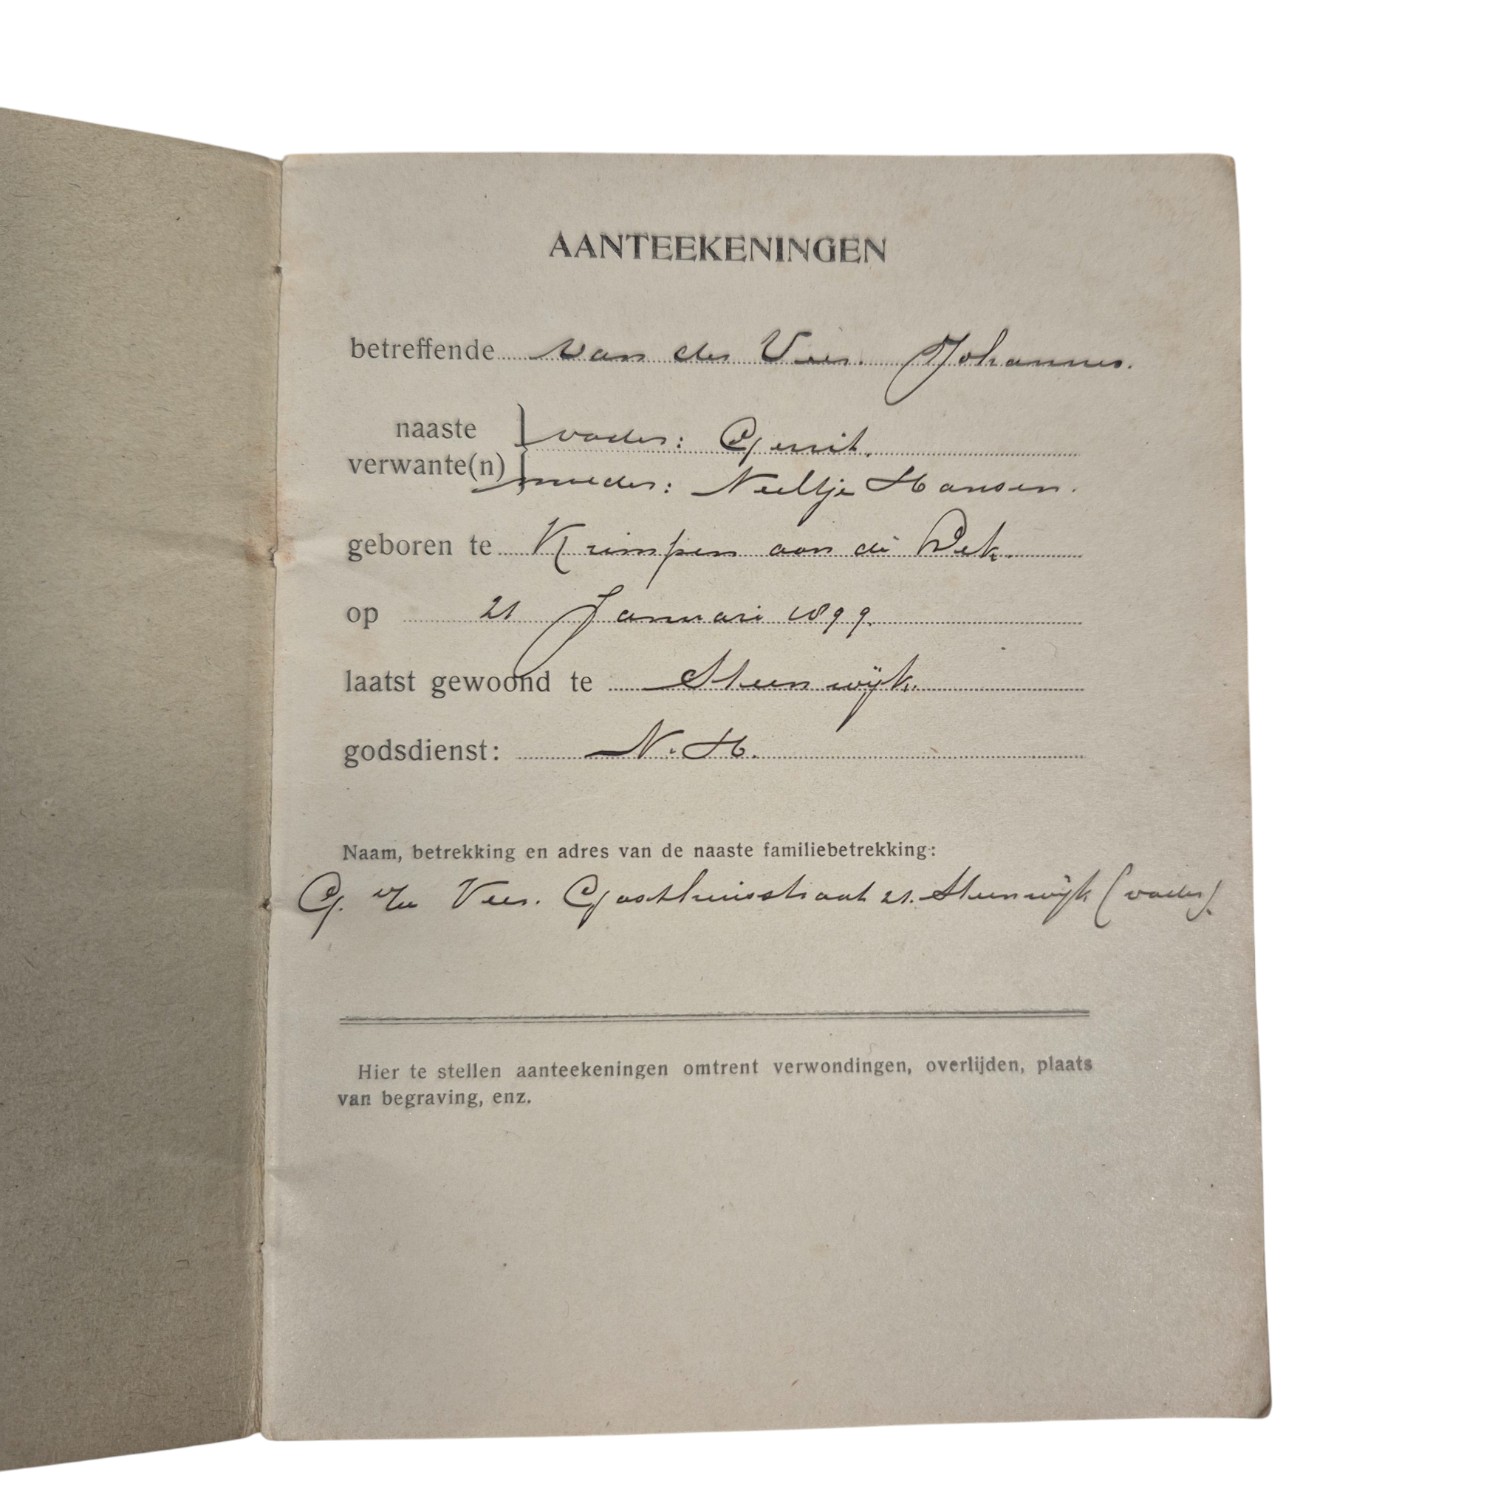 AANTEEKENINGEN
betreffende van der Veer. Johannes.
naaste } vader: Gerrit.
verwante(n) } moeder: Neeltje Hansen.
geboren te Krimpen aan de Lek.
op 21 Januari 1899.
laatst gewoond te Steenwijk.
godsdienst: N.H.
Naam, betrekking en adres van de naaste familiebetrekking:
G. v/d Veer. Gasthuisstraat 21. Steenwijk (vader).
Hier te stellen aanteekeningen omtrent verwondingen, overlijden, plaats
van begraving, enz.